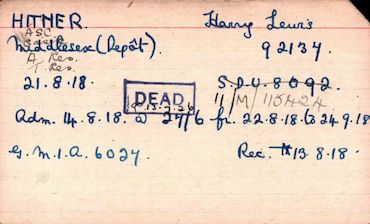 HITNER. Harry Lewis
ASC
Middlesex (Depôt). 92137.
A/ Res.
T. Res.
21.8.18. S.D.U. 8092.
DEAD 11/M/115424
Adm. 14.8.18. 27/6 fr. 22.8.18. 24.9.18
G.M.I.A. 6027. Rec. 13.8.18.